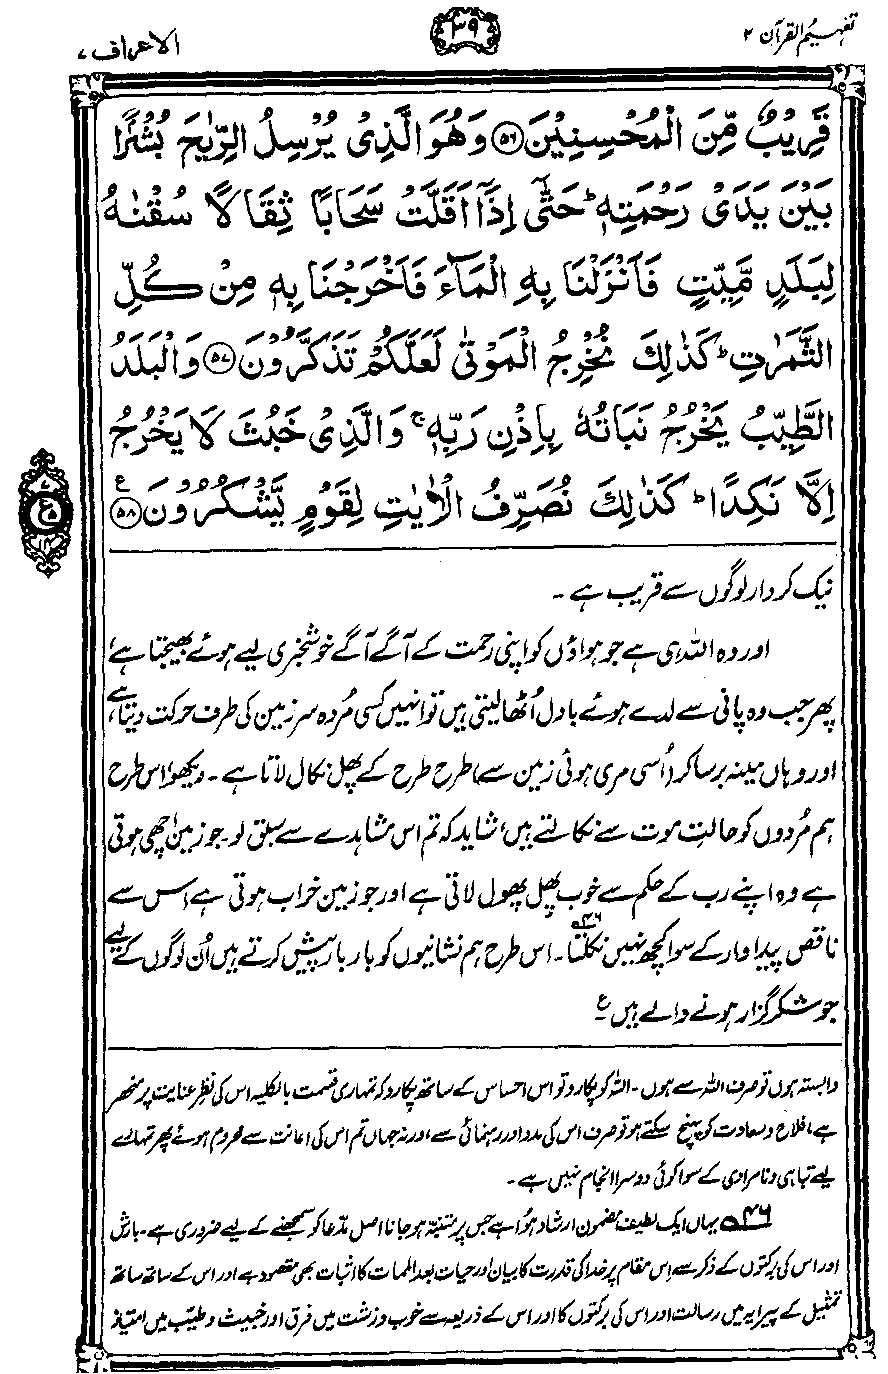 تفہیم القرآن ۲
۳۹
الاعراف ۷
قَرِيْبٌ مِّنَ الْمُحْسِنِيْنَ ﴿۵۶﴾ وَهُوَ الَّذِيْ يُرْسِلُ الرِّيٰحَ بُشْرًا
بَيْنَ يَدَيْ رَحْمَتِهٖ ؕ حَتّٰۤى اِذَاۤ اَقَلَّتْ سَحَابًا ثِقَالًا سُقْنٰهُ
لِبَلَدٍ مَّيِّتٍ فَاَنْزَلْنَا بِهِ الْمَآءَ فَاَخْرَجْنَا بِهٖ مِنْ كُلِّ
الثَّمَرٰتِ ؕ كَذٰلِكَ نُخْرِجُ الْمَوْتٰى لَعَلَّكُمْ تَذَكَّرُوْنَ ﴿۵۷﴾ وَالْبَلَدُ
الطَّيِّبُ يَخْرُجُ نَبَاتُهٗ بِاِذْنِ رَبِّهٖ ۚ وَالَّذِيْ خَبُثَ لَا يَخْرُجُ
اِلَّا نَكِدًا ؕ كَذٰلِكَ نُصَرِّفُ الْاٰيٰتِ لِقَوْمٍ يَّشْكُرُوْنَ ﴿۵۸﴾ ع
نیک کردار لوگوں سے قریب ہے۔
اور وہ اللہ ہی ہے جو ہواؤں کو اپنی رحمت کے آگے آگے خوشخبری لیے ہوئے بھیجتا ہے،
پھر جب وہ پانی سے لدے ہوئے بادل اُٹھا لیتی ہیں تو انہیں کسی مُردہ سرزمین کی طرف حرکت دیتا ہے،
اور وہاں مینہ برسا کر (اُسی مری ہوئی زمین سے) طرح طرح کے پھل نکال لاتا ہے۔ دیکھو، اس طرح
ہم مُردوں کو حالتِ موت سے نکالتے ہیں، شاید کہ تم اس مشاہدے سے سبق لو۔ جو زمین اچھی ہوتی
ہے وہ اپنے رب کے حکم سے خوب پھل پھول لاتی ہے اور جو زمین خراب ہوتی ہے اس سے
ناقص پیداوار کے سوا کچھ نہیں نکلتا۔ ۴۶ اس طرح ہم نشانیوں کو بار بار پیش کرتے ہیں اُن لوگوں کے لیے
جو شکر گزار ہونے والے ہیں۔ ع
وابستہ ہوں تو صرف اللہ سے ہوں۔ اللہ کو پکارو تو اس احساس کے ساتھ پکارو کہ تمہاری قسمت بالکلیہ اس کی نظرِ عنایت پر منحصر
ہے، فلاح و سعادت کو پہنچ سکتے ہو تو صرف اس کی مدد اور رہنمائی سے، ورنہ جہاں تم اس کی اعانت سے محروم ہوئے پھر تمہارے
لیے تباہی و نامرادی کے سوا کوئی دوسرا انجام نہیں ہے۔
۴۶ یہاں ایک لطیف مضمون ارشاد ہوا ہے جس پر متنبّہ ہو جانا اصل مدّعا کو سمجھنے کے لیے ضروری ہے۔ بارش
اور اس کی برکتوں کے ذکر سے اِس مقام پر خدا کی قدرت کا بیان اور حیات بعد الممات کا اثبات بھی مقصود ہے اور اس کے ساتھ ساتھ
تمثیل کے پیرایہ میں رسالت اور اس کی برکتوں کا اور اس کے ذریعہ سے خوب و زشت میں فرق اور خبیث و طیّب میں امتیاز